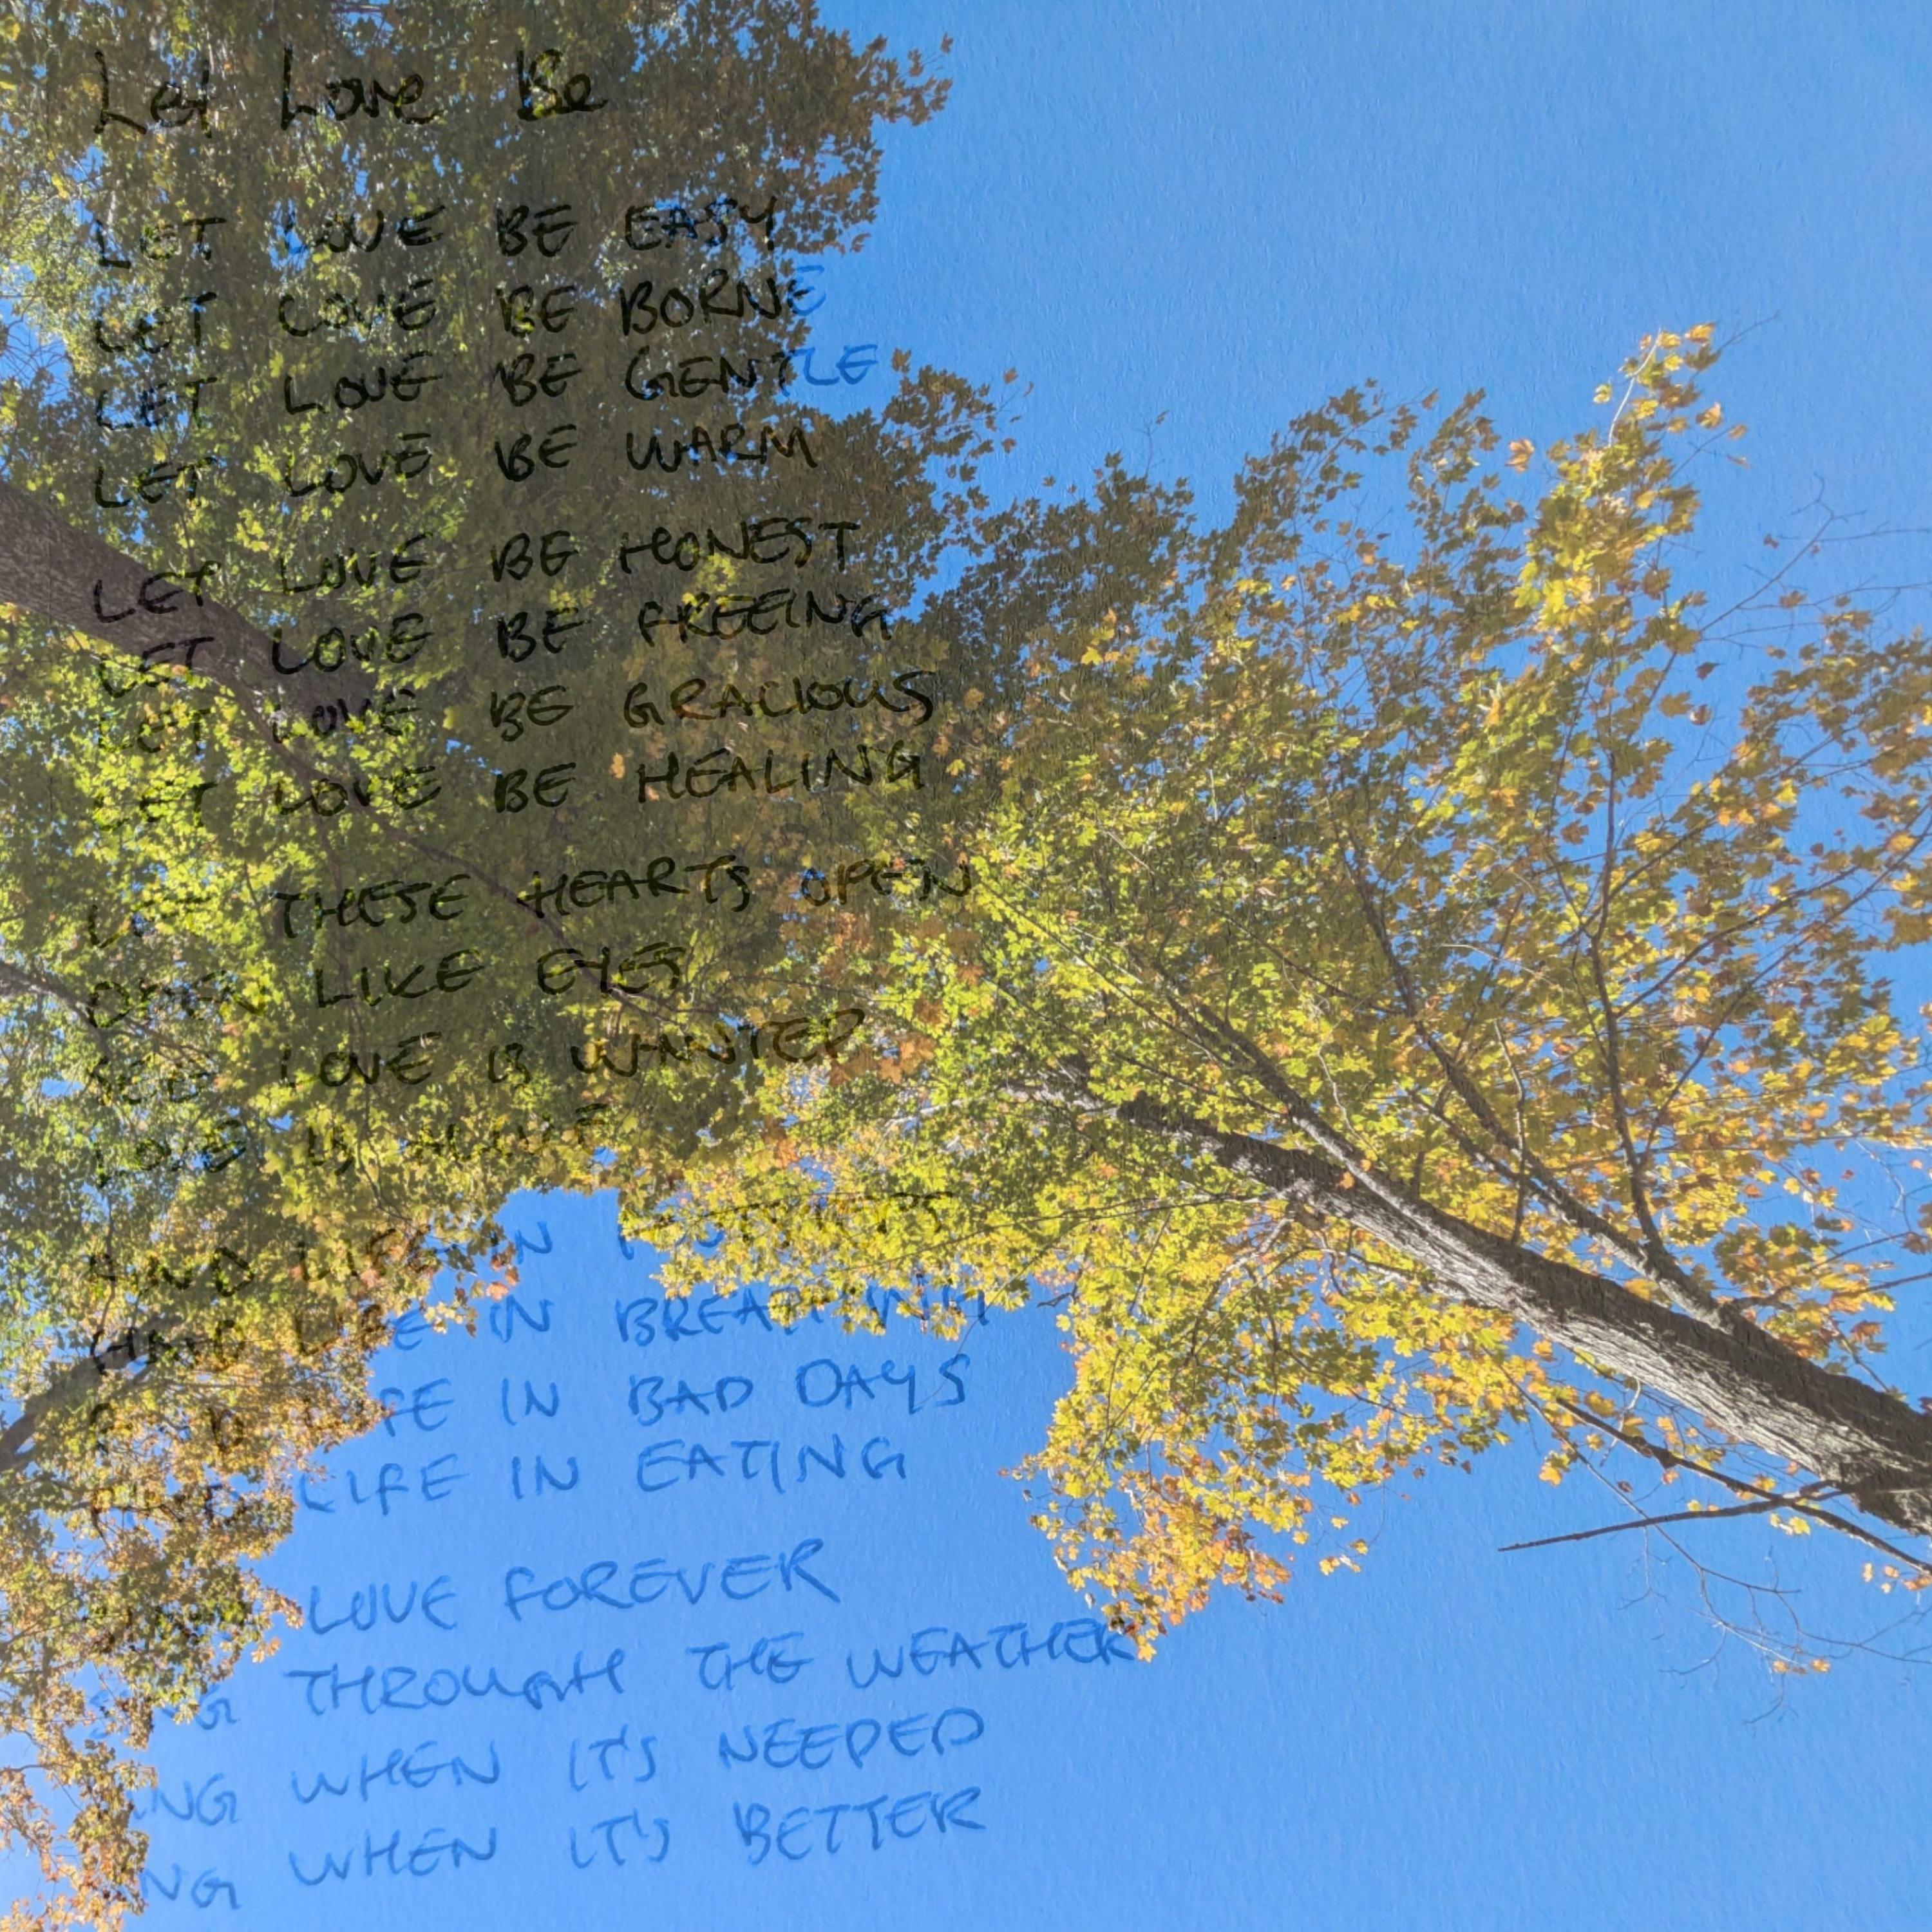 Let Love Be
LET LOVE BE EASY
LET LOVE BE BORNE
LET LOVE BE GENTLE
LET LOVE BE WARM
LET LOVE BE HONEST
LET LOVE BE FREEING
LET LOVE BE GRACIOUS
LET LOVE BE HEALING
LET THESE HEARTS OPEN
OPEN LIKE EYES
SEE LOVE IS WANTED
LOVE IS ALIVE
FIND LIFE IN
FIND LIFE IN BREATHING
FIND LIFE IN BAD DAYS
FIND LIFE IN EATING
LOVE FOREVER
THROUGH THE WEATHER
WHEN IT'S NEEDED
WHEN IT'S BETTER